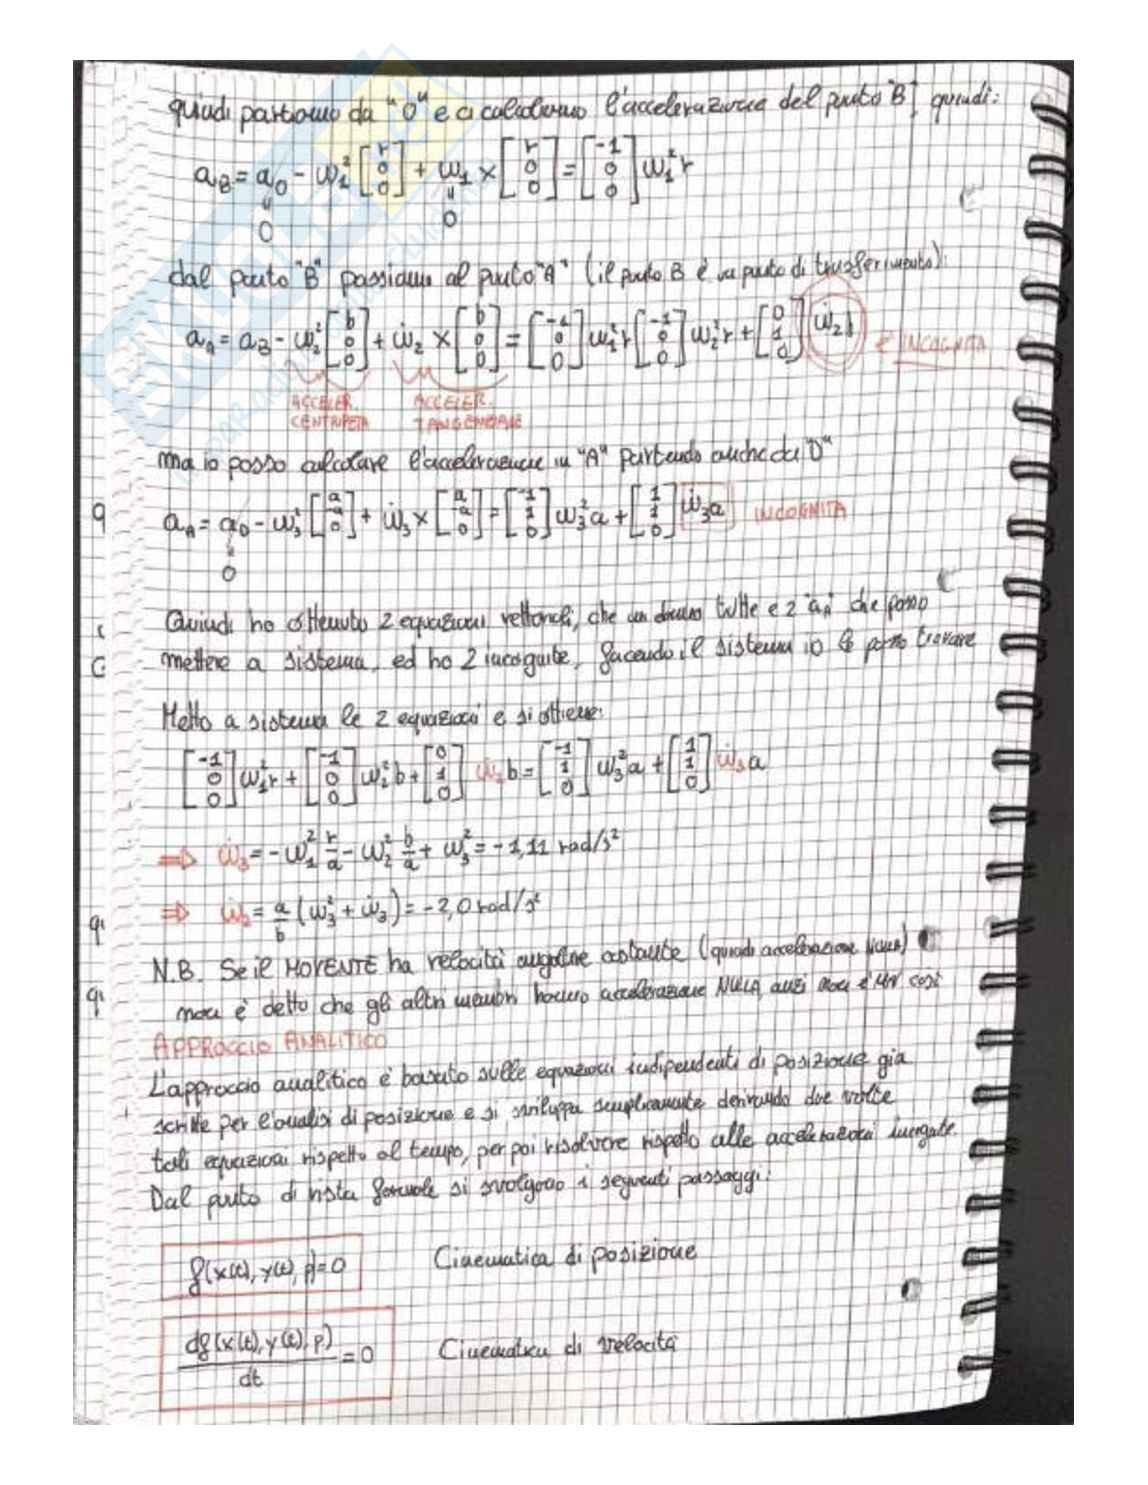 quindi partiamo da "O" e ci calcoliamo l'accelerazione del punto "B", quindi:
aB = aO - ω1² [r 0 0] + ω̇1 × [r 0 0] = [-1 0 0] ω1² r
0 0
dal punto "B" passiamo al punto "A" (il punto B è un punto di trasferimento):
aA = aB - ω2² [b 0 0] + ω̇2 × [b 0 0] = [-1 0 0] ω1² r [-1 0 0] ω2² r + [0 1 0] ω̇2 b è INCOGNITA
ACCELER. CENTRIPETA ACCELER. TANGENZIALE
ma io posso calcolare l'accelerazione in "A" partendo anche da "D"
aA = aD - ω3² [a a 0] + ω̇3 × [a a 0] = [-1 1 0] ω3² a + [1 1 0] ω̇3 a INCOGNITA
0
Quindi ho ottenuto 2 equazioni vettoriali, che mi danno tutte e 2 "aA" che posso
mettere a sistema, ed ho 2 incognite, facendo il sistema io le posso trovare
Metto a sistema le 2 equazioni e si ottiene:
[-1 0 0] ω1² r + [-1 0 0] ω2² b + [0 1 0] ω̇2 b = [-1 1 0] ω3² a + [1 1 0] ω̇3 a
⇒ ω̇3 = - ω1² r/a - ω2² b/a + ω3² = -1,11 rad/s²
⇒ ω̇2 = a/b (ω3² + ω̇3) = -2,0 rad/s²
N.B. Se il MOVENTE ha velocità angolare costante (quindi accelerazione NULLA)
non è detto che gli altri membri hanno accelerazione NULLA, anzi non è MAI così
APPROCCIO ANALITICO
L'approccio analitico è basato sulle equazioni indipendenti di posizione già
scritte per l'analisi di posizione e si sviluppa semplicemente derivando due volte
tali equazioni rispetto al tempo, per poi risolvere rispetto alle accelerazioni incognite.
Dal punto di vista formale si svolgono i seguenti passaggi:
f(x(t), y(t), p) = 0 Cinematica di posizione
df(x(t), y(t), p)/dt = 0 Cinematica di velocità